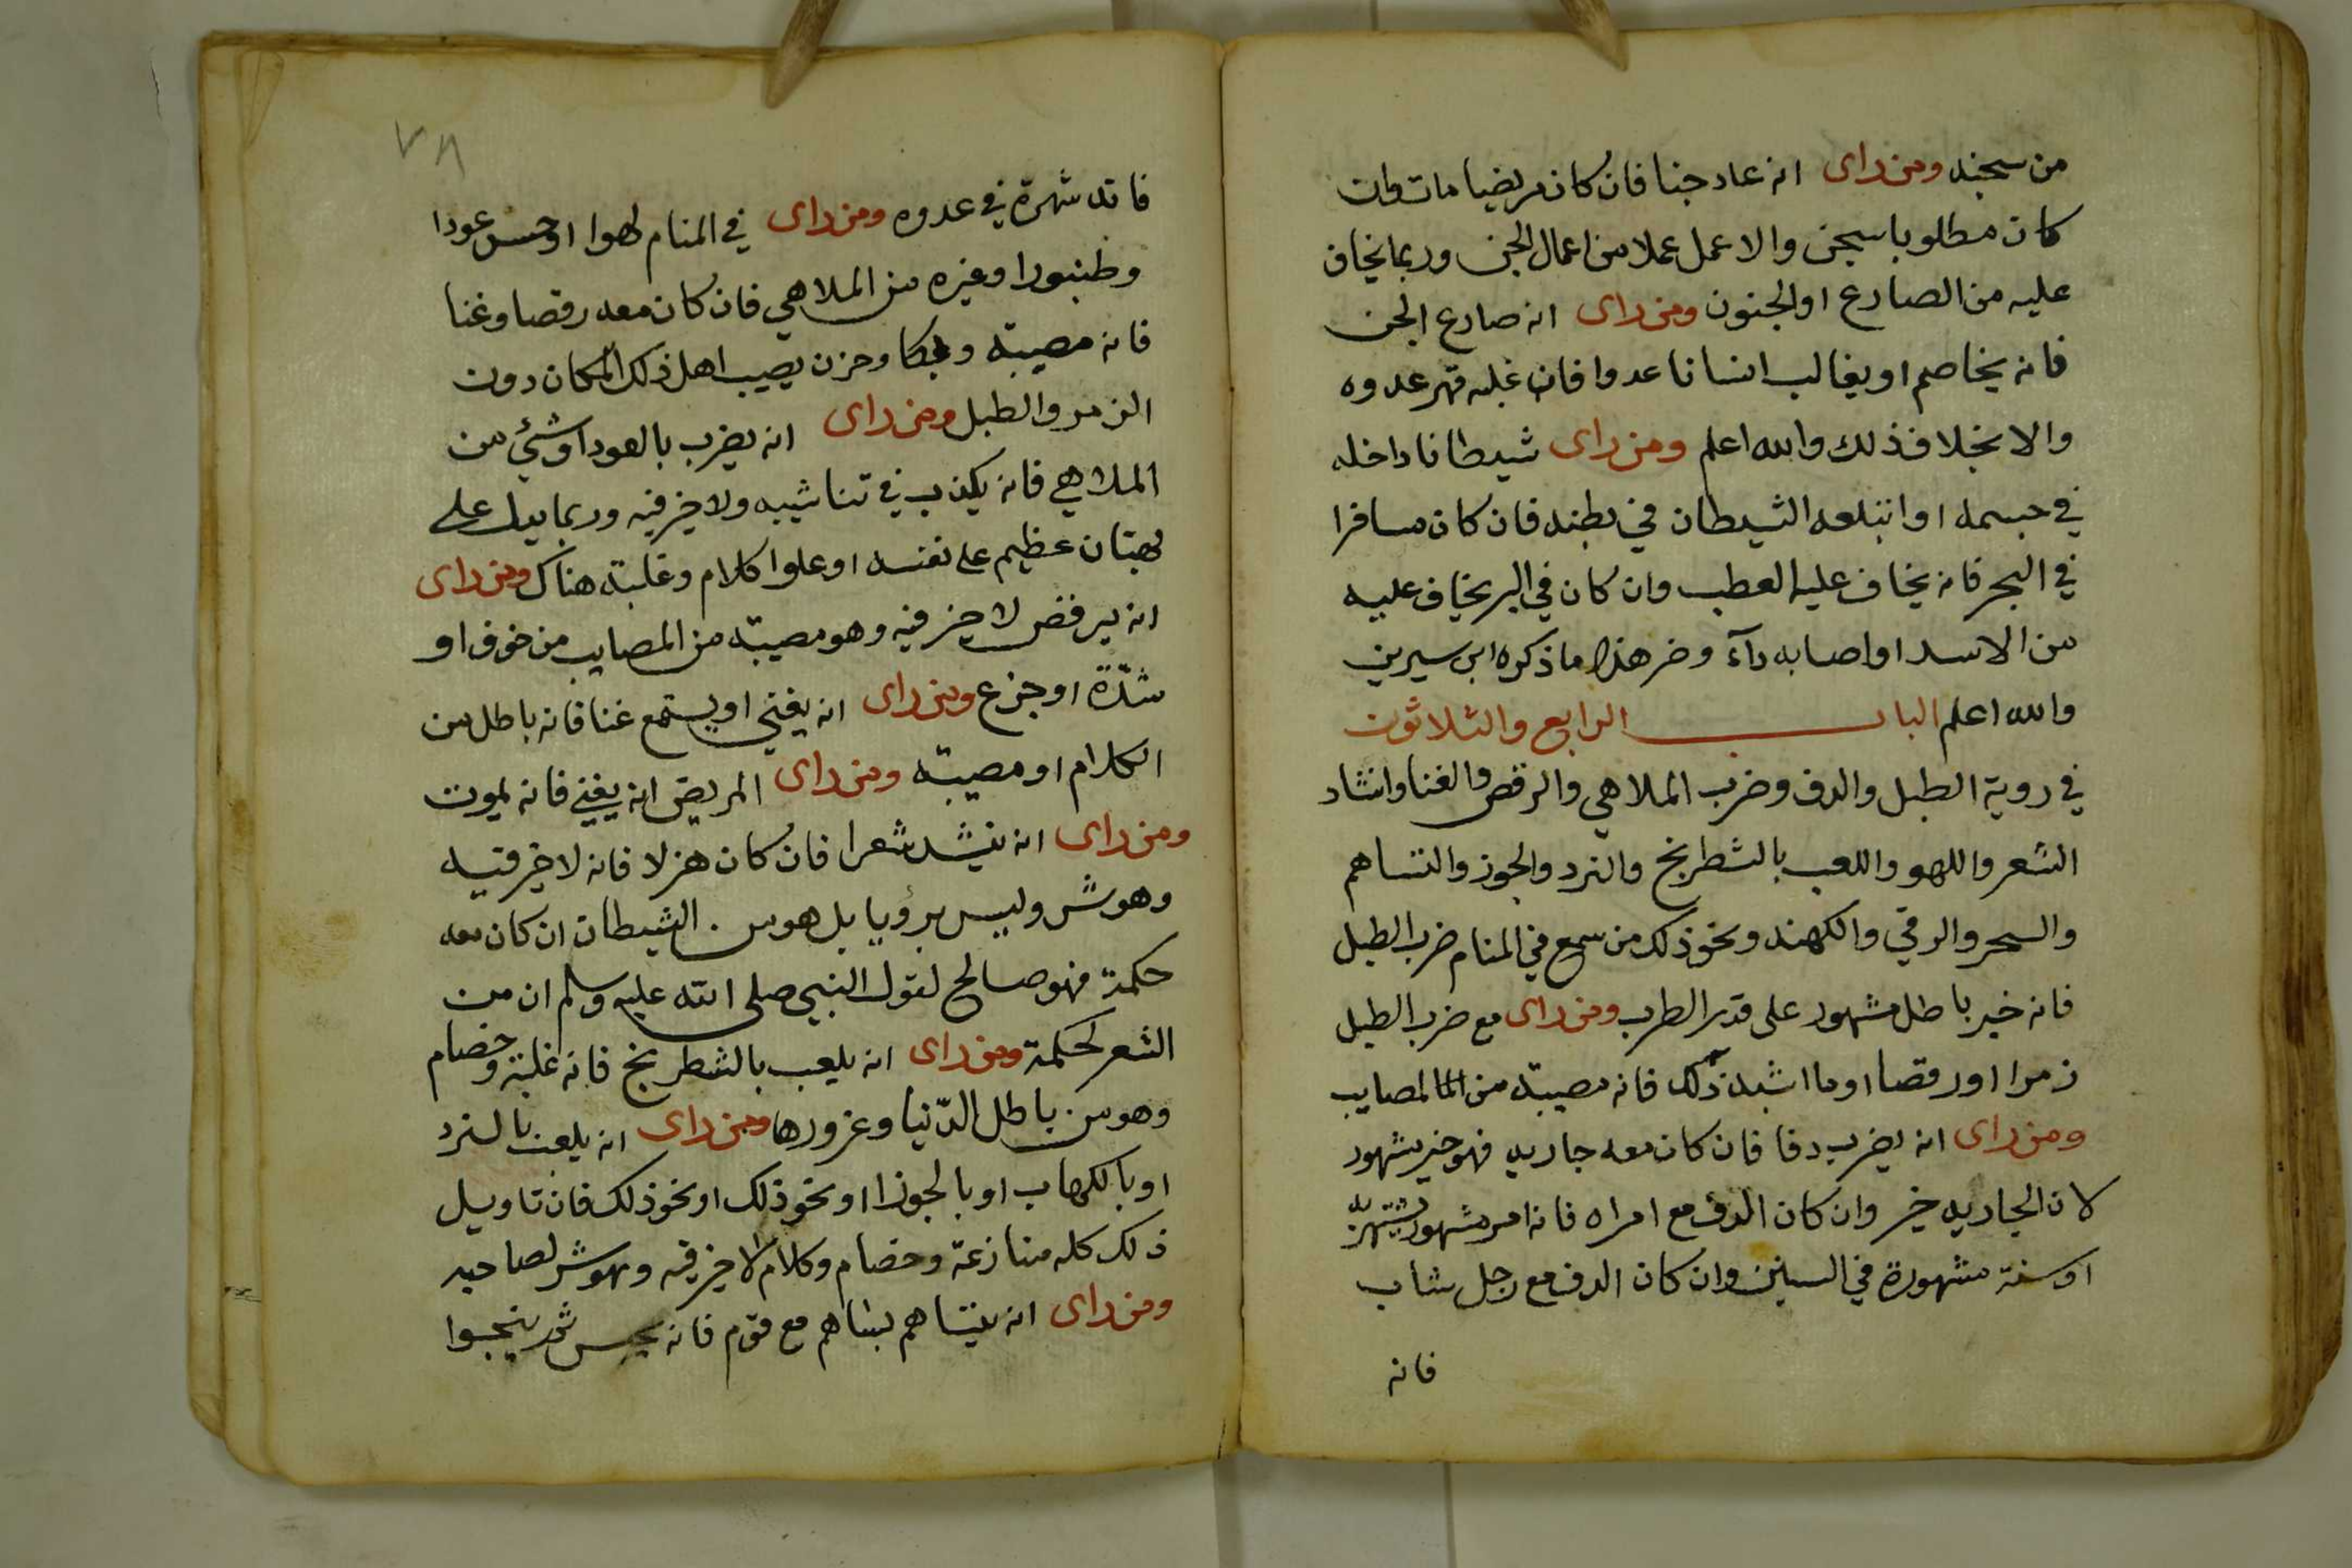 من سجنه ومن راى انه عاد جنا فان كان مريضا مات وان
كان مطلوبا سجن والا عمل عملا من اعمال الجن وربما يخاف
عليه من الصارع او الجنون ومن راى انه صارع الجن
فانه يخاصم او يغالب انسانا عدوا فان غلبه قهر عدوه
والا بخلاف ذلك والله اعلم ومن راى شيطانا داخله
في جسمه او ابتلعه الشيطان في بطنه فان كان مسافرا
في البحر فانه يخاف عليه العطب وان كان في البر يخاف عليه
من الاسد او اصابه دآء وضر هذا ما ذكره ابن سيرين
والله اعلم الباب الرابع والثلاثون
في روية الطبل والدف وضرب الملاهي والرقص والغنا وانشاد
الشعر واللهو واللعب بالشطرنج والنرد والجوز والتساهم
والسحر والرقي والكهنه ونحو ذلك من سمع في المنام ضرب الطبل
فانه خبر باطل مشهور على قدر الطرب ومن راى مع ضرب الطبل
زمرا او رقصا او ما اشبه ذلك فانه مصيبة من المصايب
ومن راى انه يضرب دفا فان كان معه جاريه فهو خير مشهور
لان الجاريه خير وان كان الدف مع امراه فانه امر مشهور
او سنة مشهورة في السنين وان كان الدف مع رجل شاب
فانه
٧٨
فانه شهرة في عدوه ومن راى في المنام لهوا او حس عودا
وطنبورا وغيره من الملاهي فان كان معه رقصا وغنا
فانه مصيبة وبكا وحزن يصيب اهل ذلك المكان دون
الزمر والطبل ومن راى انه يضرب بالعود او شئ من
الملاهي فانه يكذب في ولا خير فيه وربما يدل على
بهتان عظيم على نفسه او علو كلام وغلبة هناك ومن راى
انه يرقص لا خير فيه وهو مصيبة من المصايب من خوف او
شدّة او جزع ومن راى انه يغني او يستمع غنا فانه باطل من
الكلام او مصيبة ومن راى المريض انه يغني فانه يموت
ومن راى انه ينشد شعرا فان كان هزلا فانه لا خير فيه
وهو شر وليس برؤيا بل هوس الشيطان ان كان معه
حكمة فهو صالح لقول النبي صلى الله عليه وسلم ان من
الشعر لحكمة ومن راى انه يلعب بالشطرنج فانه غلبة وخصام
وهو من باطل الدّنيا وغرورها ومن راى انه يلعب بالنرد
او بالكعاب او بالجوز او نحو ذلك او نحو ذلك فان تاويل
ذلك كله منازعة وخصام وكلام لا خير فيه وهو شر لصاحبه
ومن راى انه يتساهم بساهم مع قوم فانه يحبس ثم ينجوا